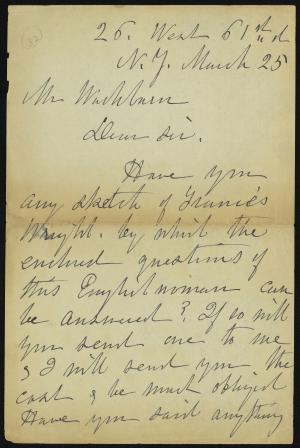 26. West 61st st
N.Y. March 25
Mr Washburn
Dear sir.
Have you
any sketch of Francis
Wright. by which the
enclosed questions of
this English woman can
be answered? If so will
you send one to me
& I will send you the
cost & be much obliged
Have you said anything